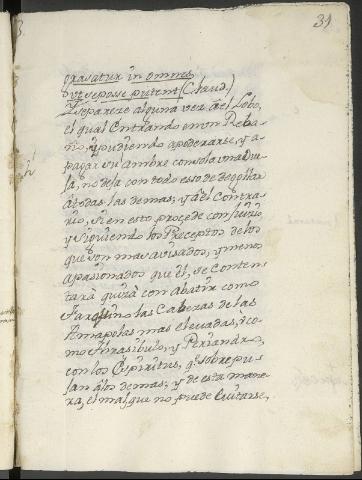 31
grasatur in omnes
ut se posse putent (Claud.)
Y se pareze alguna vez à el Lobo,
el qual Entrando en un Reba-
ño, y pudiendo apoderarse, y a-
pagar su ambre con sola una Oue-
la, no deja con todo esso de degollar
à todas las demas; y à el Contra-
rio, si en esto procede con juizio
y siguiendo los Preceptos de los
que son mas auisados, y menos
apasionados que èl, se Conten-
tarà quizà con abatir como
Tarquino las Cabezas de las
Amapolas mas eleuadas, ò co-
mo Thrasibulo, y Periandro,
con los Espiritus, q.e sobrepu-
jan à los demas; y de esta mane-
ra, el mal que no puede Euitarse,